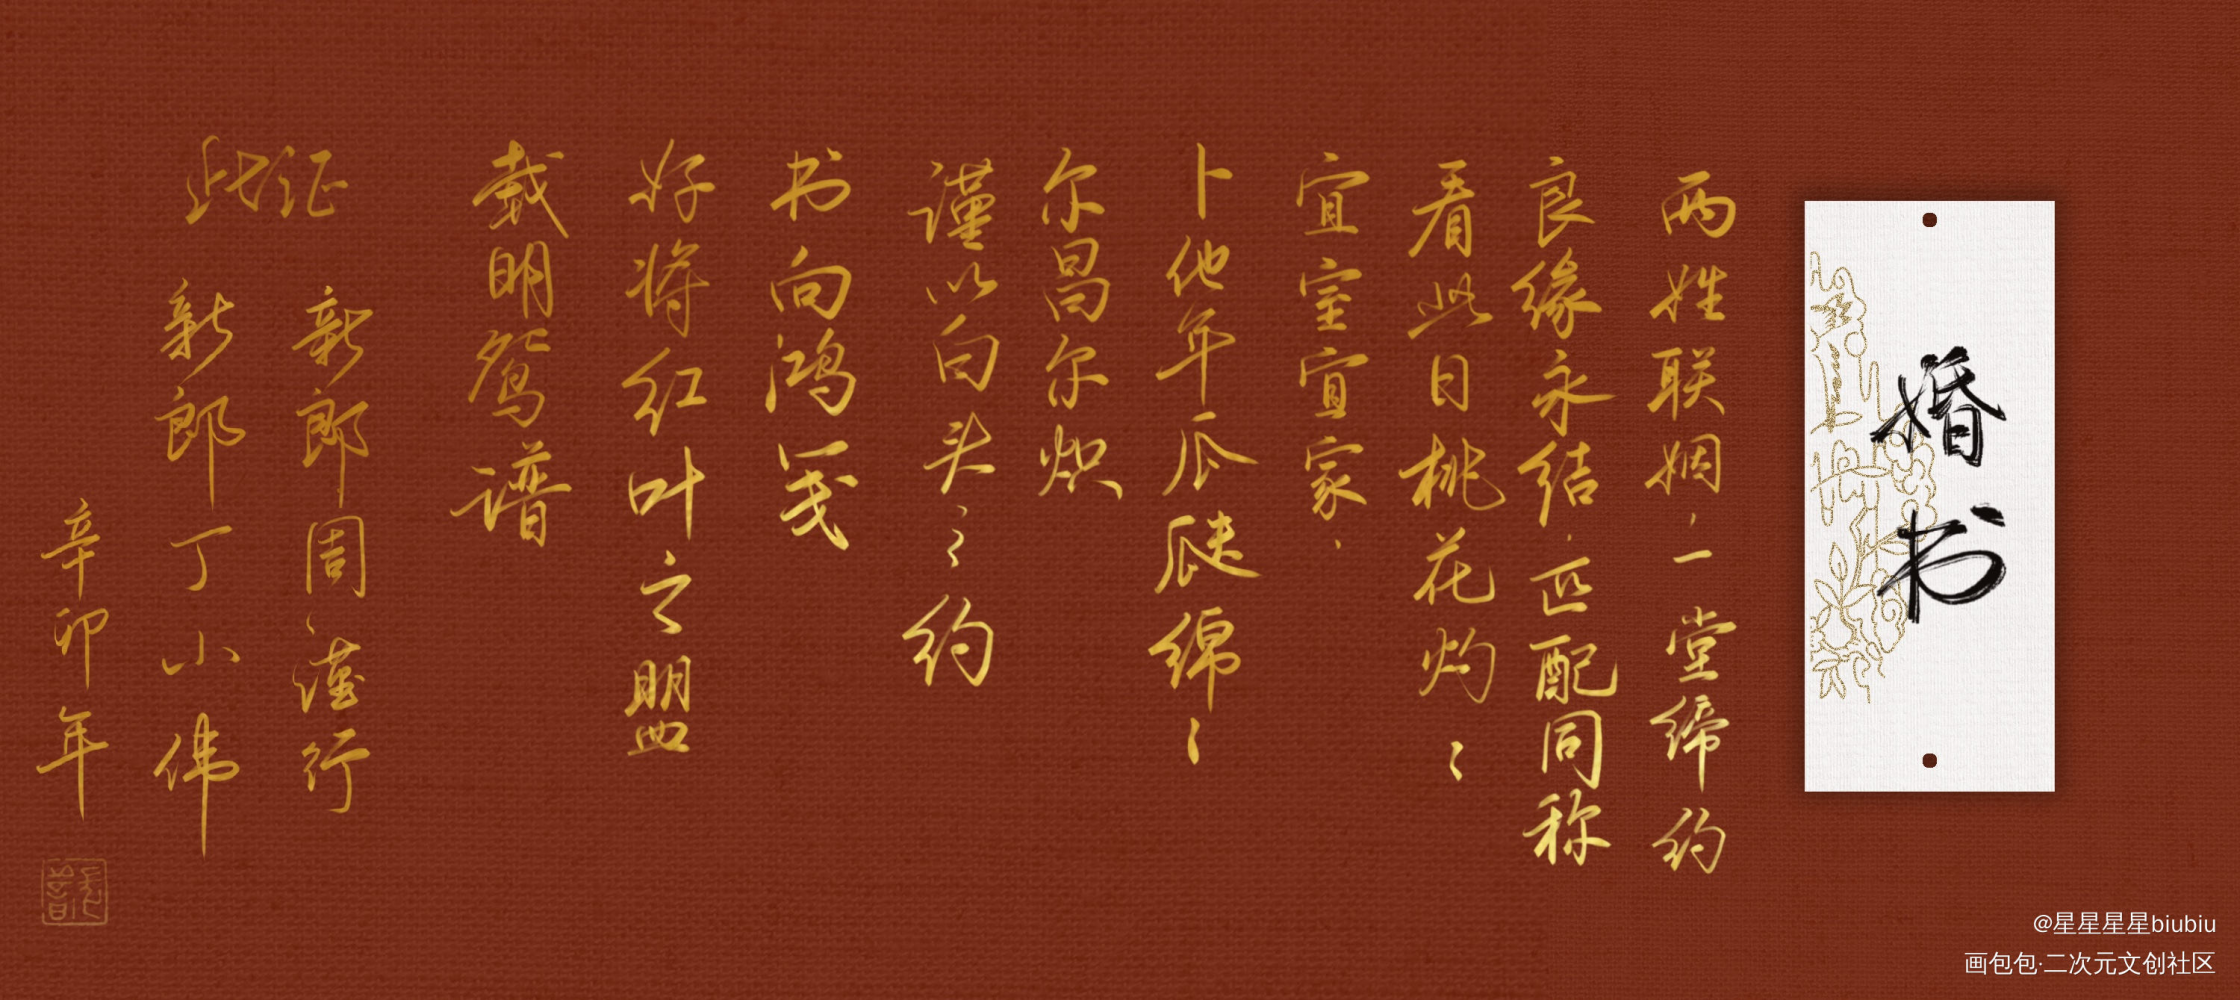 婚书
两姓联姻，一堂缔约
良缘永结，匹配同称
看此日桃花灼〻
宜室宜家，
卜他年瓜瓞绵〻
尔昌尔炽
谨以白头之约
书向鸿笺
好将红叶之盟
载明鸳谱
此证
新郎周瑜谨行
新郎丁小伟
辛卯年
@星星星星biubiu
画包包·二次元文创社区